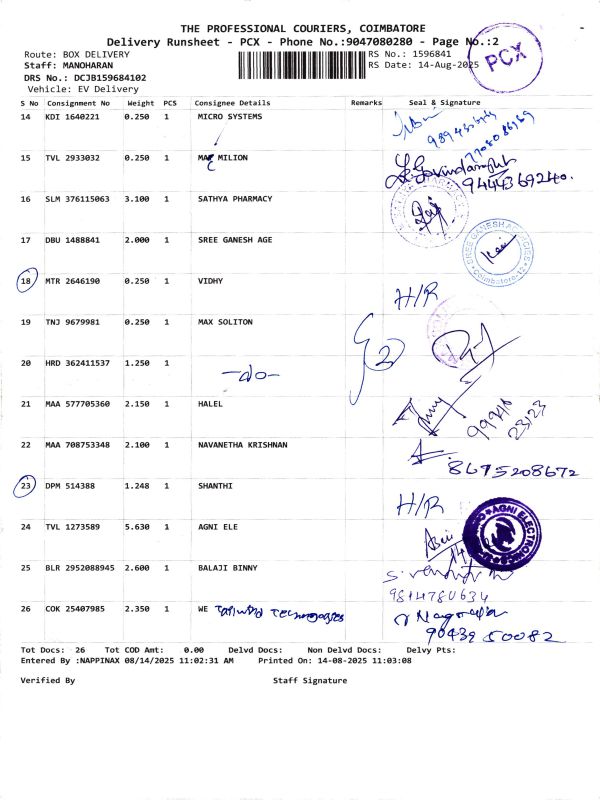 THE PROFESSIONAL COURIERS, COIMBATORE
Delivery Runsheet - PCX - Phone No.:9047080280 - Page No.:2
PCX
Route: BOX DELIVERY
RS No.: 1596841
Staff: MANOHARAN
RS Date: 14-Aug-2025
DRS No.: DCJB159684102
Vehicle: EV Delivery
S No Consignment No Weight PCS Consignee Details Remarks Seal & Signature
14 KDI 1640221 0.250 1 MICRO SYSTEMS
15 TVL 2933032 0.250 1 MILION
9444369240.
16 SLM 376115063 3.100 1 SATHYA PHARMACY
17 DBU 1488841 2.000 1 SREE GANESH AGE
Coimbatore-12
18 MTR 2646190 0.250 1 VIDHY H/R
19 TNJ 9679981 0.250 1 MAX SOLITON
20 HRD 362411537 1.250 1 -do- 2
21 MAA 577705360 2.150 1 HALEL
22 MAA 708753348 2.100 1 NAVANETHA KRISHNAN
8675208672
23 DPM 514388 1.248 1 SHANTHI H/R
24 TVL 1273589 5.630 1 AGNI ELE
AGNI ELECTRONICS
25 BLR 2952088945 2.600 1 BALAJI BINNY
9814780634
26 COK 25407985 2.350 1 WE Tailwind Technologies
90439 50082
Tot Docs: 26 Tot COD Amt: 0.00 Delvd Docs: Non Delvd Docs: Delvy Pts:
Entered By :NAPPINAX 08/14/2025 11:02:31 AM Printed On: 14-08-2025 11:03:08
Verified By Staff Signature